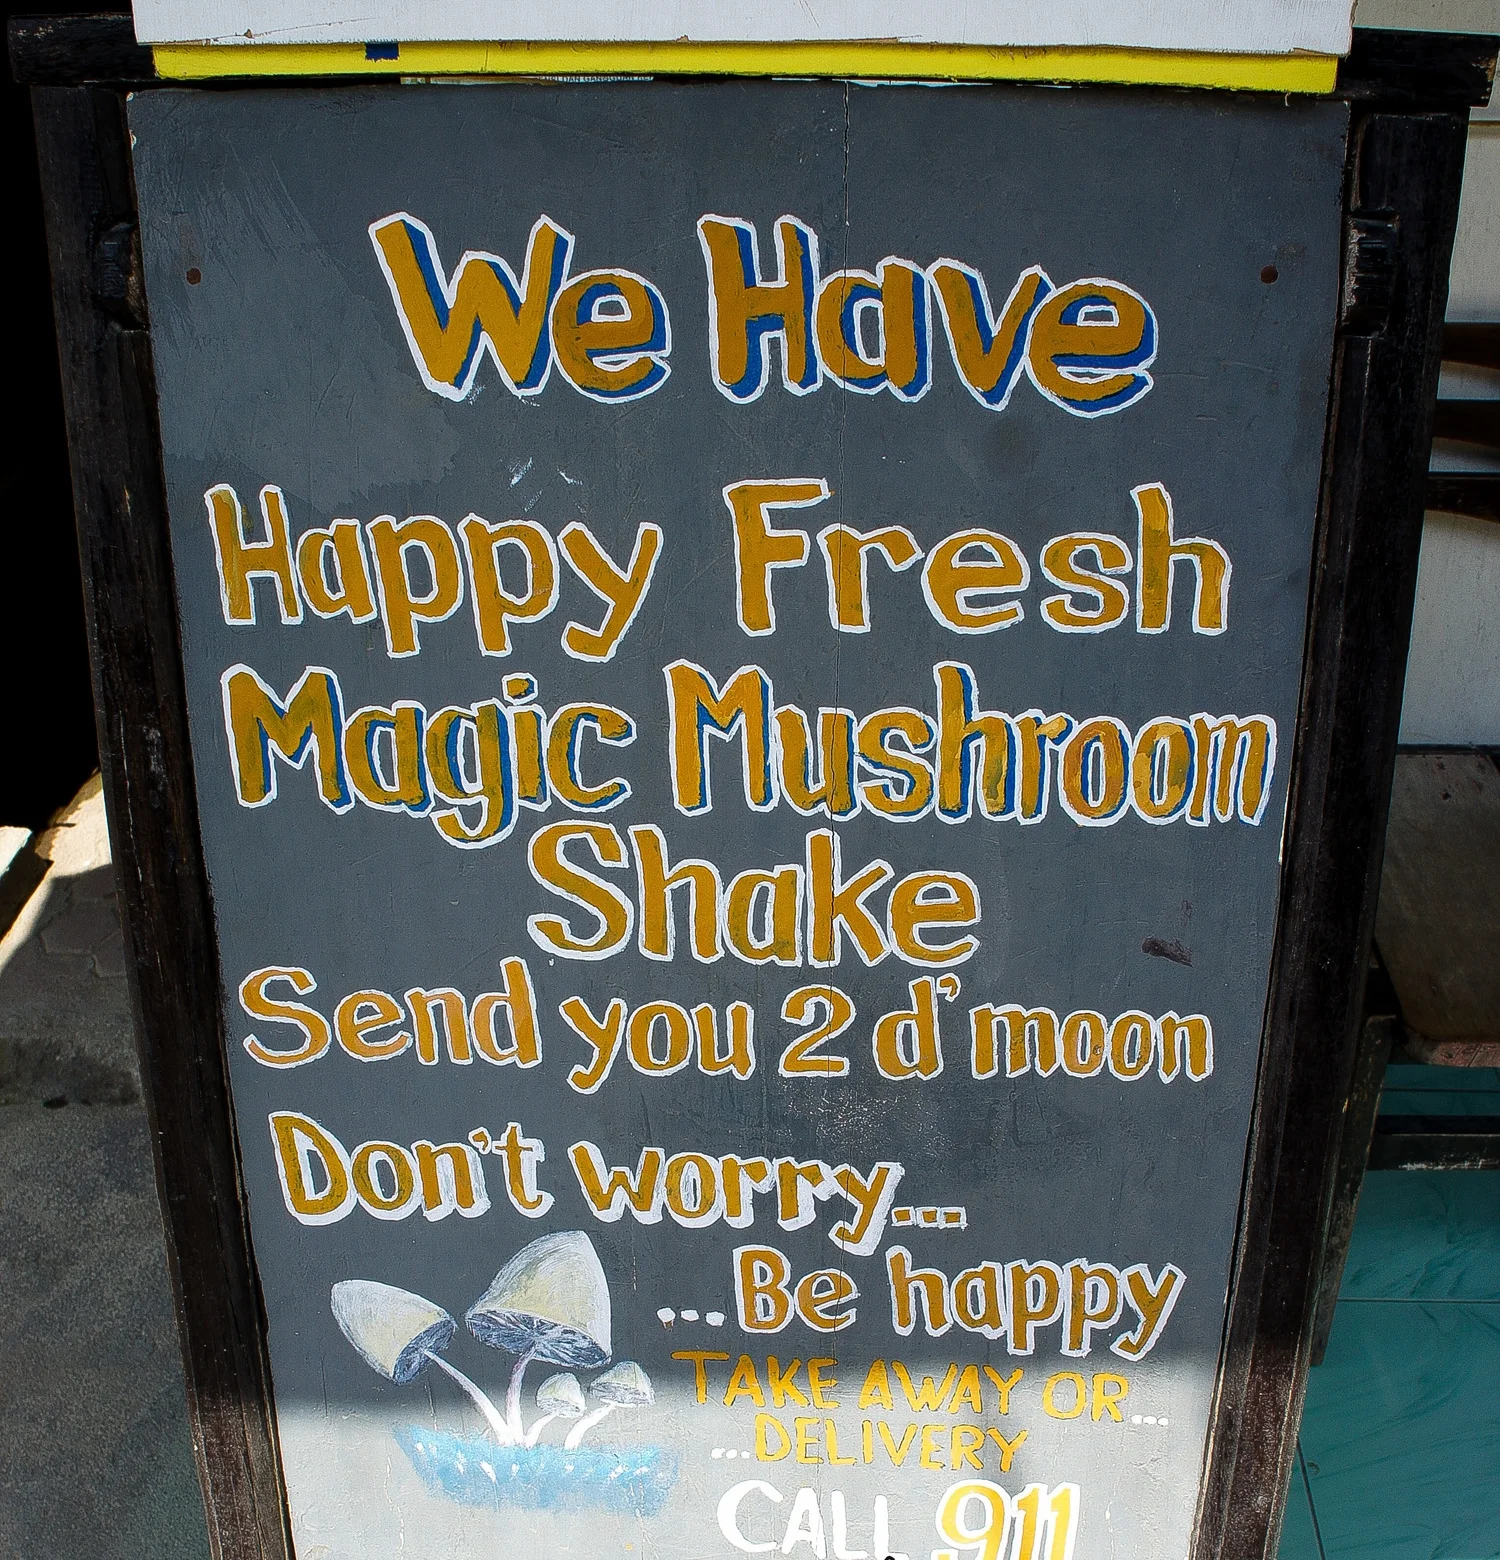 We Have
Happy Fresh
Magic Mushroom
Shake
Send you 2 d'moon
Don't worry...
...Be happy
TAKE AWAY OR...
...DELIVERY
CALL 911